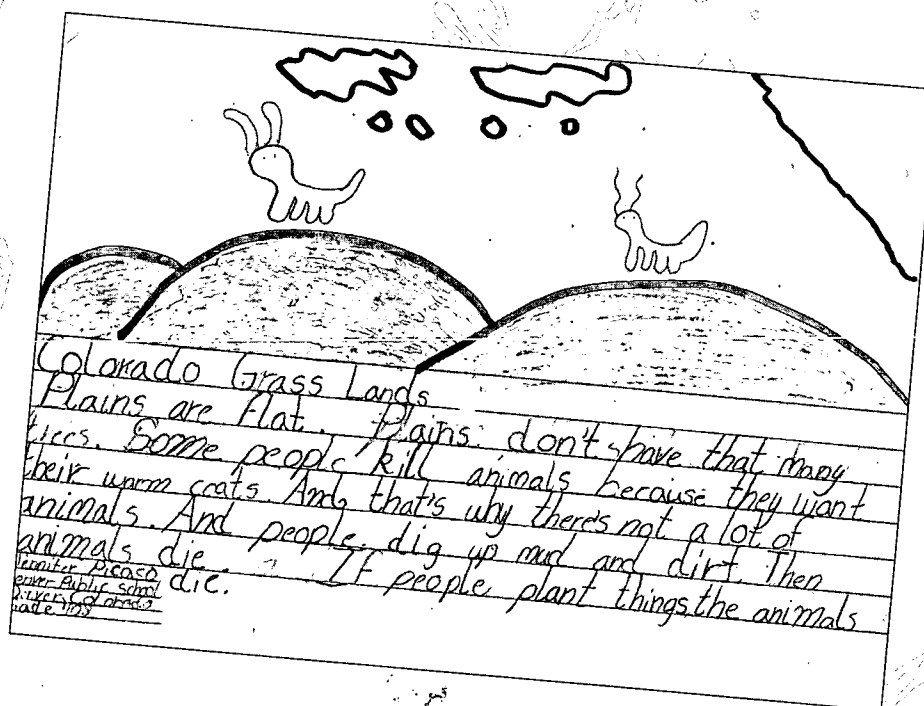 Colorado Grass Lands
Plains are flat. Plains don't have that many
trees. Some people kill animals because they want
their warm coats. And that's why there's not a lot of
animals. And people dig up mud and dirt. Then
animals die. If people plant things, the animals
die.
Jennifer Picaso
Denver Public School
Denver, Colorado